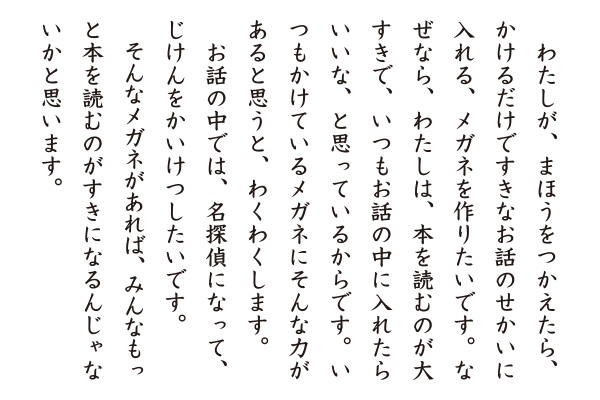 わたしが、まほうをつかえたら、
かけるだけですきなお話のせかいに
入れる、メガネを作りたいです。な
ぜなら、わたしは、本を読むのが大
すきで、いつもお話の中に入れたら
いいな、と思っているからです。い
つもかけているメガネにそんな力が
あると思うと、わくわくします。
　お話の中では、名探偵になって、
じけんをかいけつしたいです。
　そんなメガネがあれば、みんなもっ
と本を読むのがすきになるんじゃな
いかと思います。